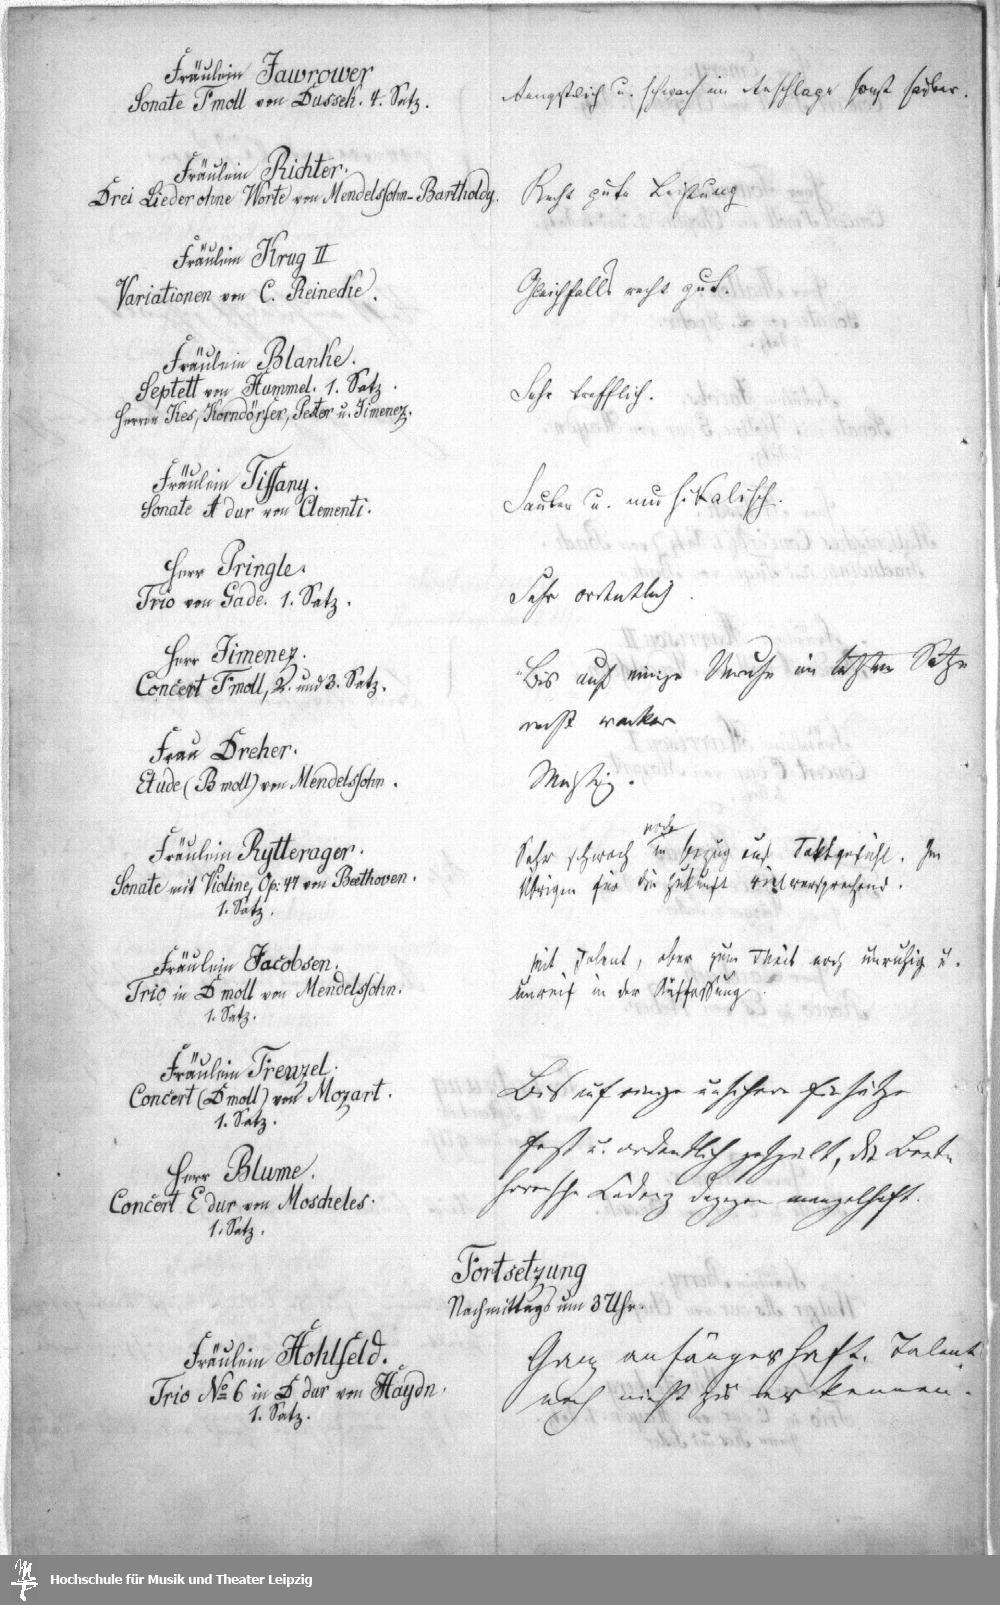 Fräulein Jawrower
Sonate Fmoll von Dussek. 4. Satz.
Aengstlich u. schwach im Anschlage sonst sauber.
Fräulein Richter.
Drei Lieder ohne Worte von Mendelssohn-Bartholdy.
Recht gute Leistung
Fräulein Krug II
Variationen von C. Reinecke.
Gleichfalls recht gut.
Fräulein Blanke.
Septett von Hummel. 1. Satz.
Herren Kes, Korndörfer, Pester u. Jimenez.
Sehr trefflich.
Fräulein Tiffany.
Sonate A dur von Clementi.
Sauber u. musikalisch.
Herr Pringle.
Trio von Gade. 1. Satz.
Sehr ordentlich.
Herr Jimenez.
Concert Fmoll, 2. und 3. Satz.
Bis auf einige Unruhe im letzten Satze
recht wacker
Frau Dreher.
Etude (B moll) von Mendelssohn.
Mäßig.
Fräulein Rytterager.
Sonate mit Violine, Op: 47 von Beethoven.
1. Satz.
Sehr schwach noch in Bezug auf Taktgefühl. Im
Übrigen für die Zukunft vielversprechend.
Fräulein Jacobsen.
Trio in D moll von Mendelssohn.
1. Satz.
Mit Talent, aber zum Theil noch unruhig u.
unreif in der Auffassung.
Fräulein Frenzel.
Concert (D moll) von Mozart.
1. Satz.
Bis auf einige unsichere Einsätze
fest u. ordentlich gespielt, die Beet-
hovensche Cadenz dagegen mangelhaft.
Herr Blume.
Concert E dur von Moscheles.
1. Satz.
Fortsetzung
Nachmittags um 3 Uhr.
Fräulein Hohlfeld.
Trio No 6 in D dur von Haydn.
1. Satz.
Ganz anfängerhaft. Talent
noch nicht zu erkennen.
Hochschule für Musik und Theater Leipzig